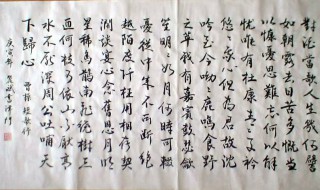 對酒當歌人生幾何譬
如朝露去日苦多慨當
以慷憂思難忘何以解
憂唯有杜康青青子衿
悠悠我心但為君故沈
吟至今呦呦鹿鳴食野
之苹我有嘉賓鼓瑟吹
笙明明如月何時可輟
憂從中來不可斷絕
越陌度阡枉用相存契
闊談宴心念舊恩月明
星稀烏鵲南飛繞樹三
匝何枝可依山不厭高
水不厭深周公吐哺天
下歸心 曹操短歌行
庚寅